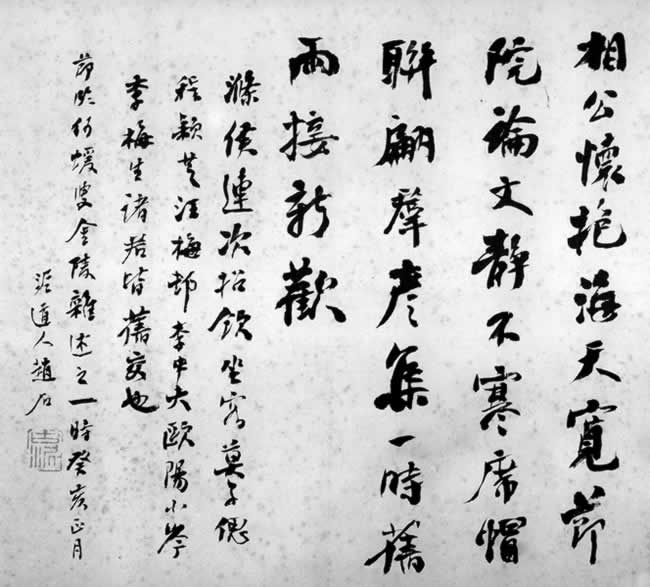 相公懷抱海天寬節
院論文靜不寒席帽
聯翩羣彥集一時舊
雨接新歡
滌侯連次招飲坐客莫子偲
程穎芝汪梅邨李中夫歐陽小岑
李梅生諸君皆舊交也
節臨何蝯叟金陵雜述之一時癸亥正月
泥道人趙石